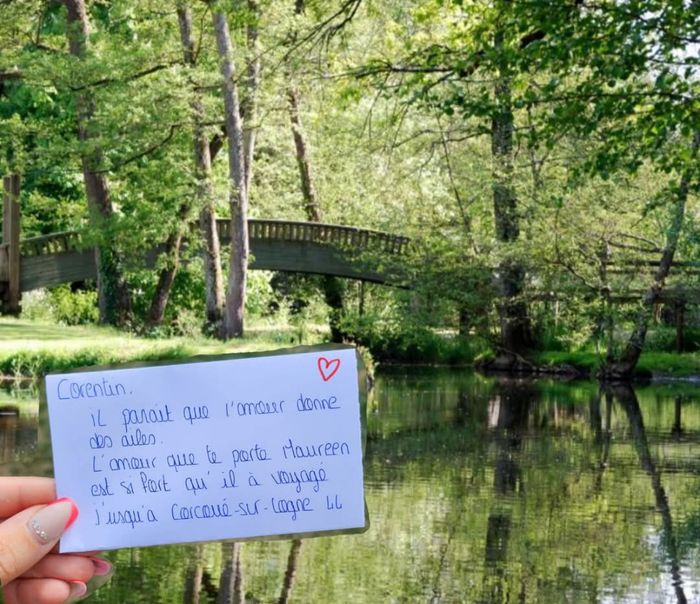 Corentin.
il parait que l'amour donne
des ailes.
L'amour que te porte Maureen
est si fort qu'il à voyagé
j'usqu'a Corcoué-sur-Logne 44